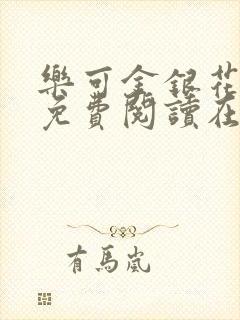 樂可金銀花
免費閱讀在
有馬嵐